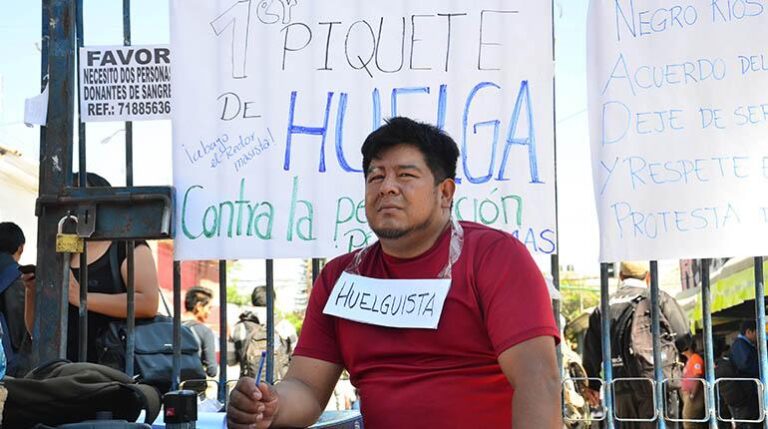 FAVOR
NECESITO DOS PERSONAS
DONANTES DE SANGRE
REF.: 71885636
1er PIQUETE
DE HUELGA
¡abajo el Rector
masista!
Contra la
HUELGUISTA
NEGRO RIOS
ACUERDO DEL
DEJE DE SER
Y RESPETE
PROTESTA